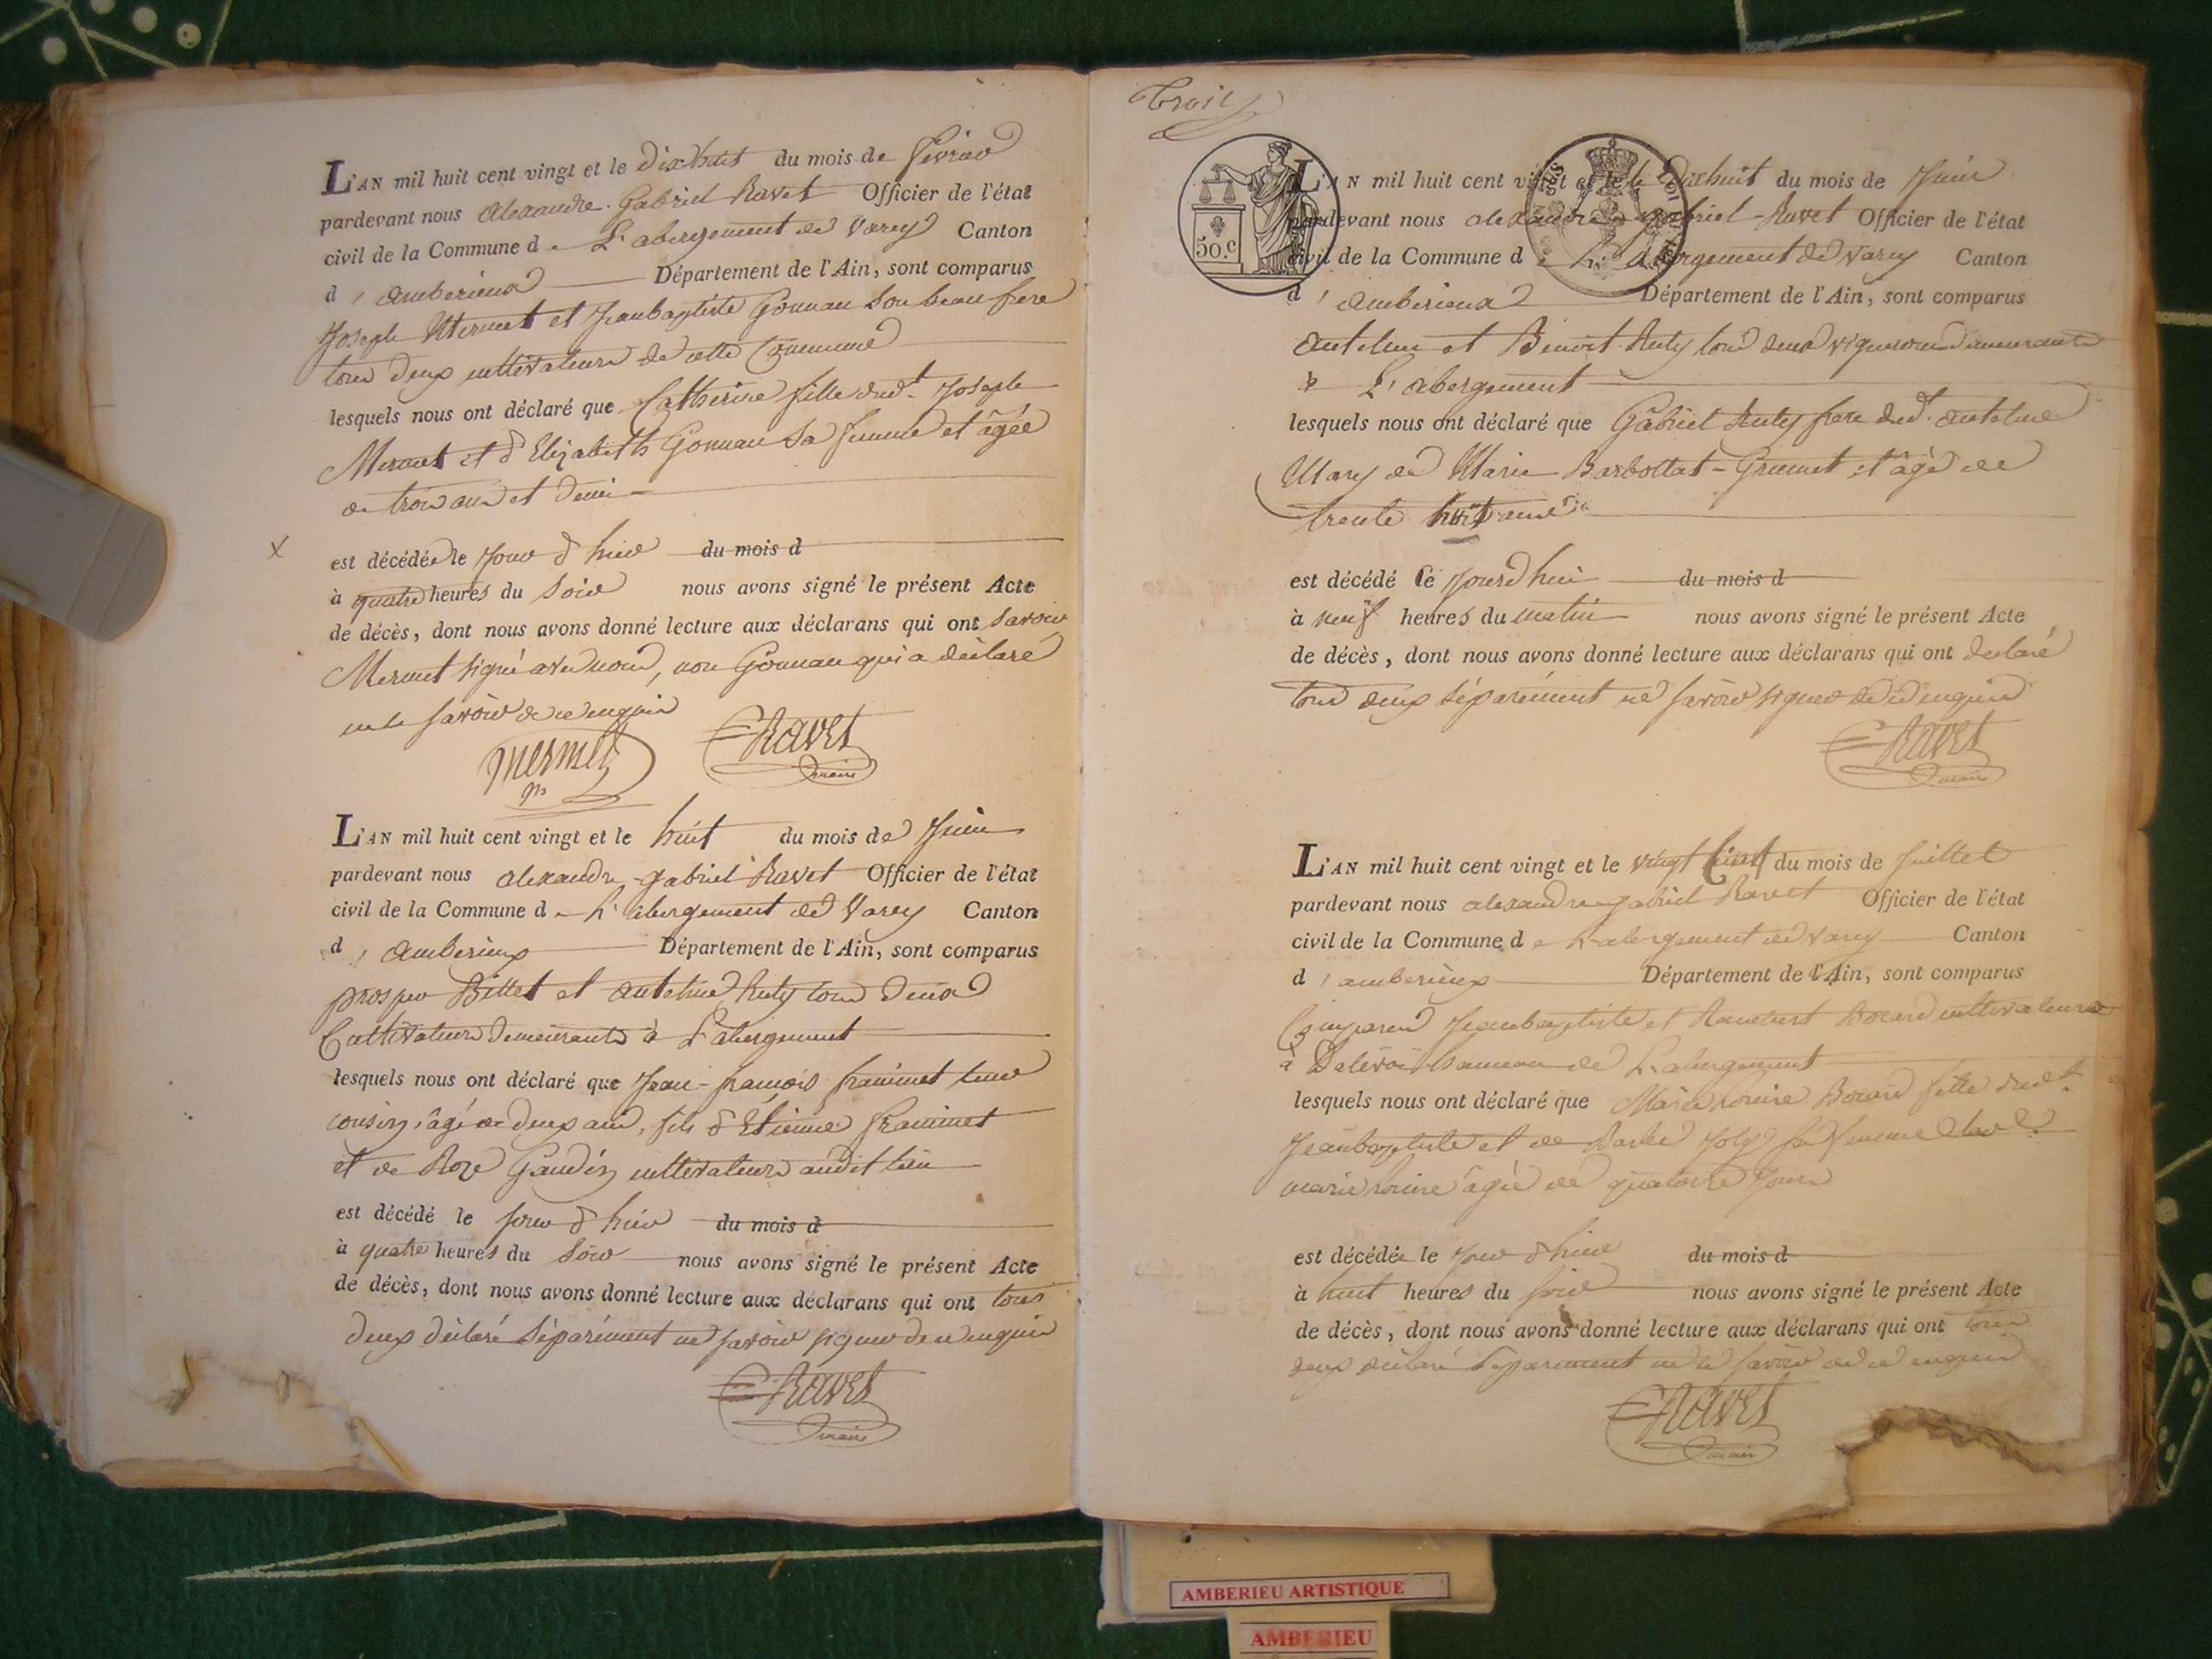 L'AN mil huit cent vingt et le Dixhuit du mois de fevrier
pardevant nous Alexandre Gabriel Ravet Officier de l'état
civil de la Commune de L'abergement de Varey Canton
d'amberieux Département de l'Ain, sont comparus
Joseph Mermet et Jeanbaptiste Gonnau son beau frere
tous deux cultivateurs de cette Commune
lesquels nous ont déclaré que Catherine fille dudt. Joseph
Mermet et d'Elizabeth Gonnau sa femme et âgée
de trois ans et demi
est décédée le jour d'hier du mois d
à quatre heures du soir nous avons signé le présent Acte
de décès, dont nous avons donné lecture aux déclarans qui ont savoir
Mermet signé avec nous, non Gonnau qui a déclaré
ne le savoir de ce enquis
Mermet Ravet
maire
L'AN mil huit cent vingt et le huit du mois de Juin
pardevant nous alexandre gabriel Ravet Officier de l'état
civil de la Commune de L'abergement de Varey Canton
d'amberieux Département de l'Ain, sont comparus
prosper Billet et antelme Ruty tous deux
Cultivateurs demeurants à L'abergement
lesquels nous ont déclaré que Jean-francois framinet leur
cousin, âgé de deux ans, fils d'Etienne framinet
et de Roze Gaudin cultivateurs audit lieu
est décédé le jour d'hier du mois d
à quatre heures du soir nous avons signé le présent Acte
de décès, dont nous avons donné lecture aux déclarans qui ont tous
deux déclaré séparément ne savoir signer de ce enquis
Ravet
maire
Trois
50.c
L'AN mil huit cent vingt et le Dixhuit du mois de Juin
pardevant nous alexandre gabriel Ravet Officier de l'état
civil de la Commune de L'abergement de Varey Canton
d'amberieux Département de l'Ain, sont comparus
antelme et Benoit Ruty tous deux vignerons demeurants
à L'abergement
lesquels nous ont déclaré que Gabriel Ruty frere dudt. antelme
Mary de Marie Barbollat-Grumet et âgé de
trente huit ans
est décédé ce jourd'hui du mois d
à neuf heures du matin nous avons signé le présent Acte
de décès, dont nous avons donné lecture aux déclarans qui ont déclaré
tous deux séparément ne savoir signer de ce enquis
Ravet
maire
L'AN mil huit cent vingt et le vingt du mois de juillet
pardevant nous alexandre gabriel Ravet Officier de l'état
civil de la Commune de L'abergement de Varey Canton
d'amberieux Département de l'Ain, sont comparus
Comparus Jeanbaptiste et Rambert Bocard cultivateurs
à Dalivoi hameau de L'abergement
lesquels nous ont déclaré que Marie Louise Bocard fille dudt.
Jeanbaptiste et de Barbe Joly sa femme lade.
marie Louise âgée de quatorze jours
est décédée le jour d'hier du mois d
à huit heures du soir nous avons signé le présent Acte
de décès, dont nous avons donné lecture aux déclarans qui ont tous
deux déclaré séparément ne le savoir de ce enquis
Ravet
maire
AMBERIEU ARTISTIQUE
AMBERIEU